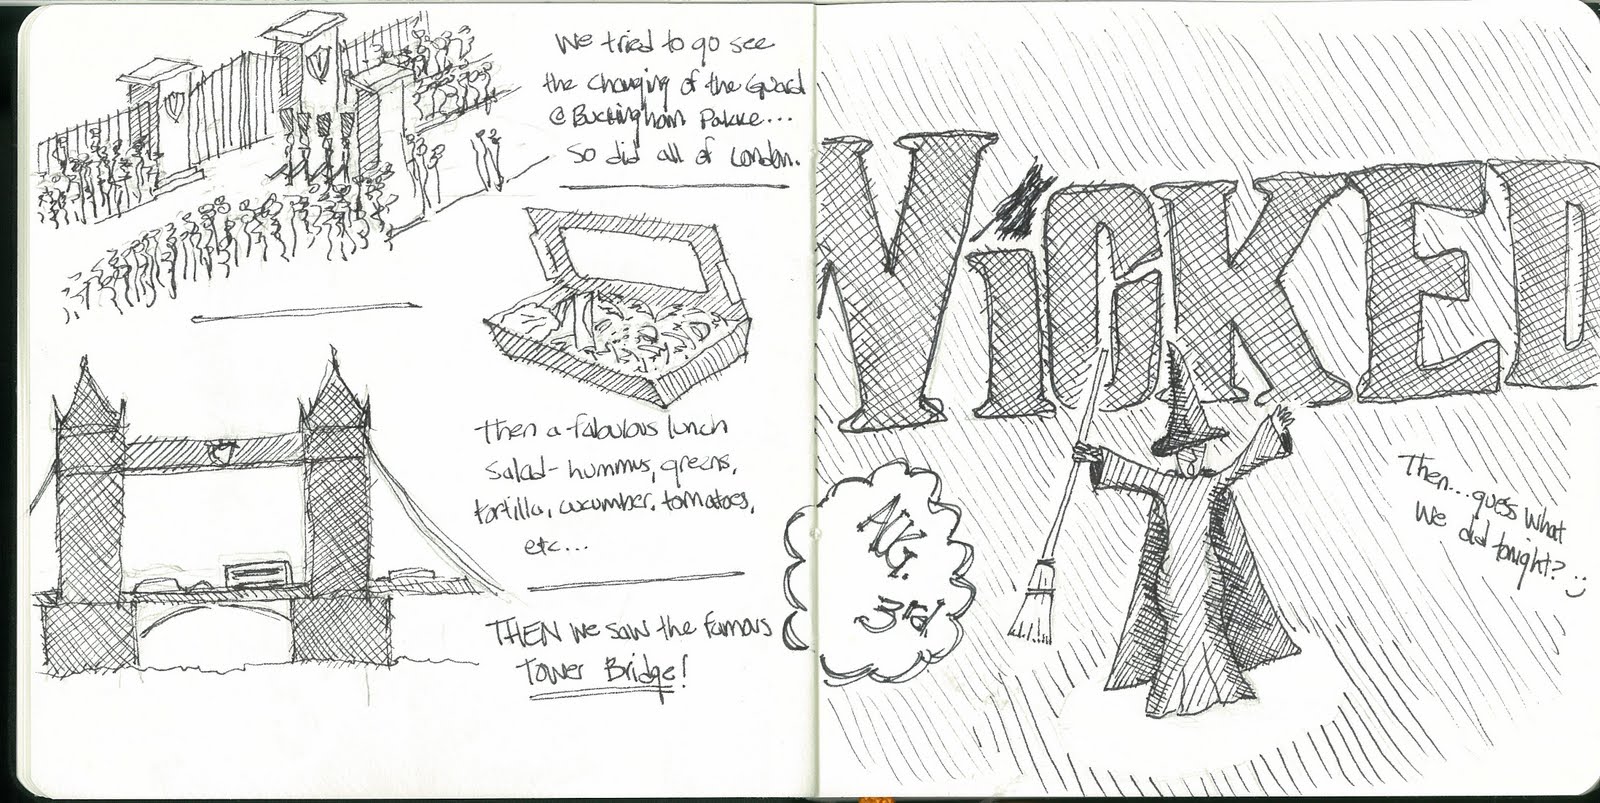 We tried to go see
the changing of the Guard
@ Buckingham Palace...
So did all of London.
Then a fabulous lunch
salad- hummus, greens,
tortilla, cucumber, tomatoes,
etc...
THEN we saw the famous
Tower Bridge!
AUG.
3rd
WiCKED
Then...guess what
we did tonight? :)